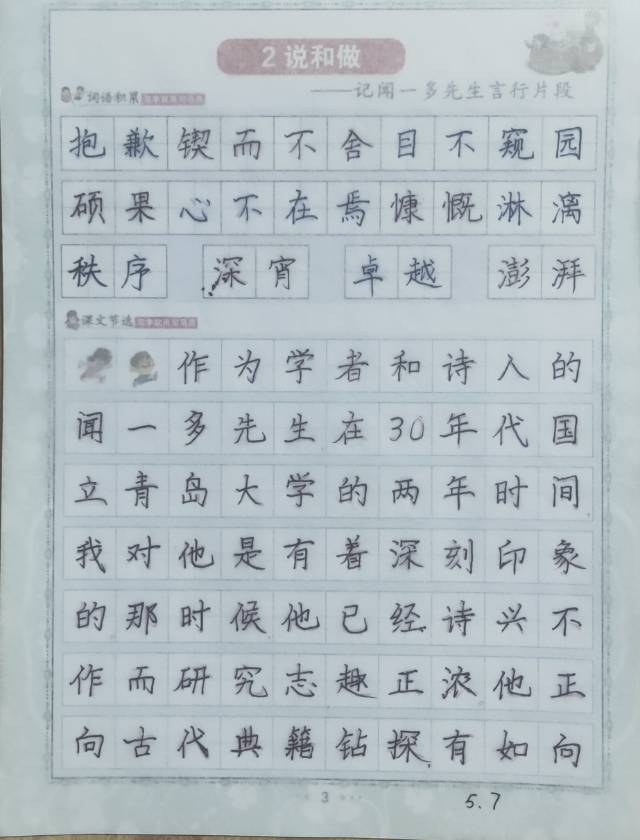 2 说和做
——记闻一多先生言行片段
词语积累
抱歉锲而不舍目不窥园
硕果心不在焉慷慨淋漓
秩序 深宵 卓越 澎湃
课文节选
作为学者和诗人的
闻一多先生在30年代国
立青岛大学的两年时间
我对他是有着深刻印象
的那时候他已经诗兴不
作而研究志趣正浓他正
向古代典籍钻探有如向
3
5.7